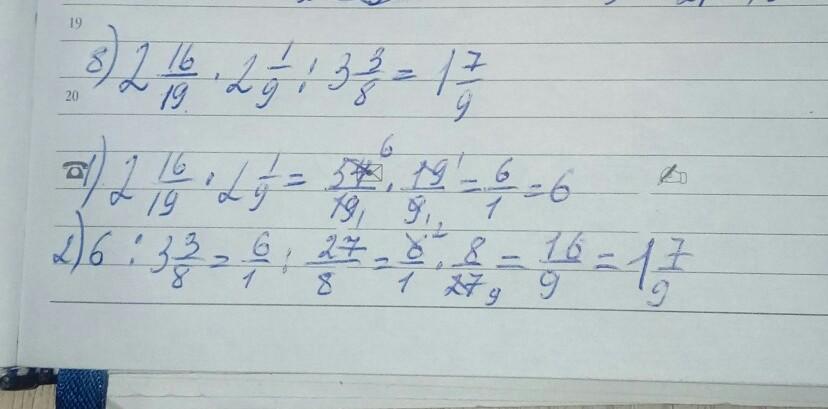 19
8) 2 16/19 · 2 1/9 : 3 3/8 = 1 7/9
20
1) 2 16/19 · 2 1/9 = 54 6/19 1 · 19 1/9 1 = 6/1 = 6
2) 6 : 3 3/8 = 6/1 : 27/8 = 6 2/1 · 8/27 9 = 16/9 = 1 7/9